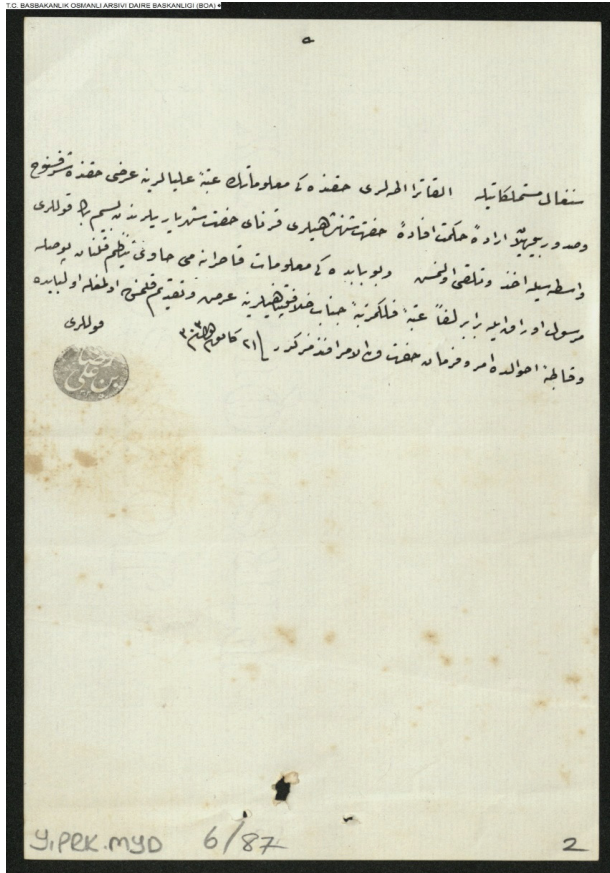 T.C. BASBAKANLIK OSMANLI ARSIVI DAIRE BASKANLIGI (BOA)
سنغال مستملكاتيله حقنده كى معلوماتك عتبۀ عليالرينه عرضى حقنده
وصدور ارادۀ حكمت افادۀ حضرت قرناى حضرت شهرياريلرندن بسيم بك قوللرى
واسطه سيله اخذ وتلقى اولنمش وبو بابده كى معلومات قاصرانه مى حاوى تنظيم قلنان پوصله
مرسول اوراق ايله برابر لفاً عتبۀ فلكمرتبۀ جناب خلافتپناهيلرينه عرض وتقديم قلنمش اولمغله اولبابده
وقاطبۀ احوالده امر وفرمان حضرت من له الامر افندمزكدر ٢١ كانون
قوللرى
على رضا
Y.PRK.MYD 6/87 2